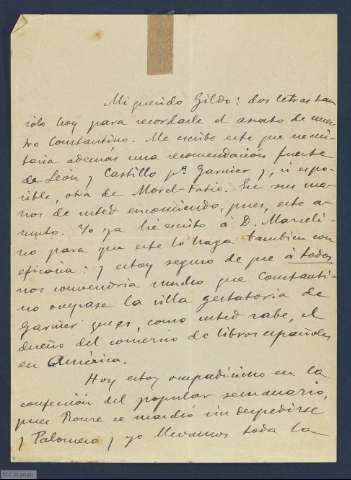 Mi querido Gildo: dos letras tan
solo hoy para recordarle el asunto de nues
tro Constantino. Me escribe este que necesi
taria además una recomendación fuerte
de León y Castillo pª Garnier y, si espo
sible, otra de Morel-Fatio. En sus ma
nos de usted encomiendo, pues, este a-
sunto. Yo ya he escrito á D. Marceli
no para que este lo haga tambien con
eficacia: y estoy seguro de que á todos
nos convendria mucho que Constanti-
no ocupase la silla gestatoria de
Garnier pues, como usted sabe, el
dueño del comercio de libros españoles
en América.
Hoy estoy ocupadísimo en la
confección del popular semanario,
pues Roure se marchó sin despedirse
y Palomero y yo llevamos toda la